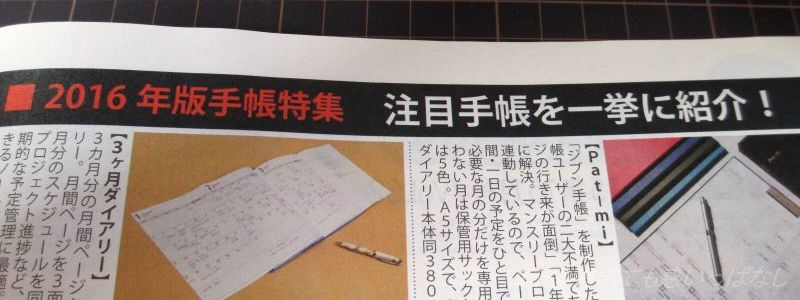 ■ 2016 年版手帳特集　注目手帳を一挙に紹介！
【Patimi】
「ジブン手帳」を制作した
帳ユーザーの二大不満で
ジの行き来が面倒」「1年
に解決。マンスリーブロ
連動しているので、ペー
間・一日の予定をひと目で
必要な月の分だけを専用
わない月は保管用サック
は5色。A5サイズで、
ダイアリー本体同380
【3ヶ月ダイアリー】
3カ月分の月間ページ
リー。月間ページを3面
月分のスケジュールを同
プロジェクト進捗など、
期的な予定管理に最適。